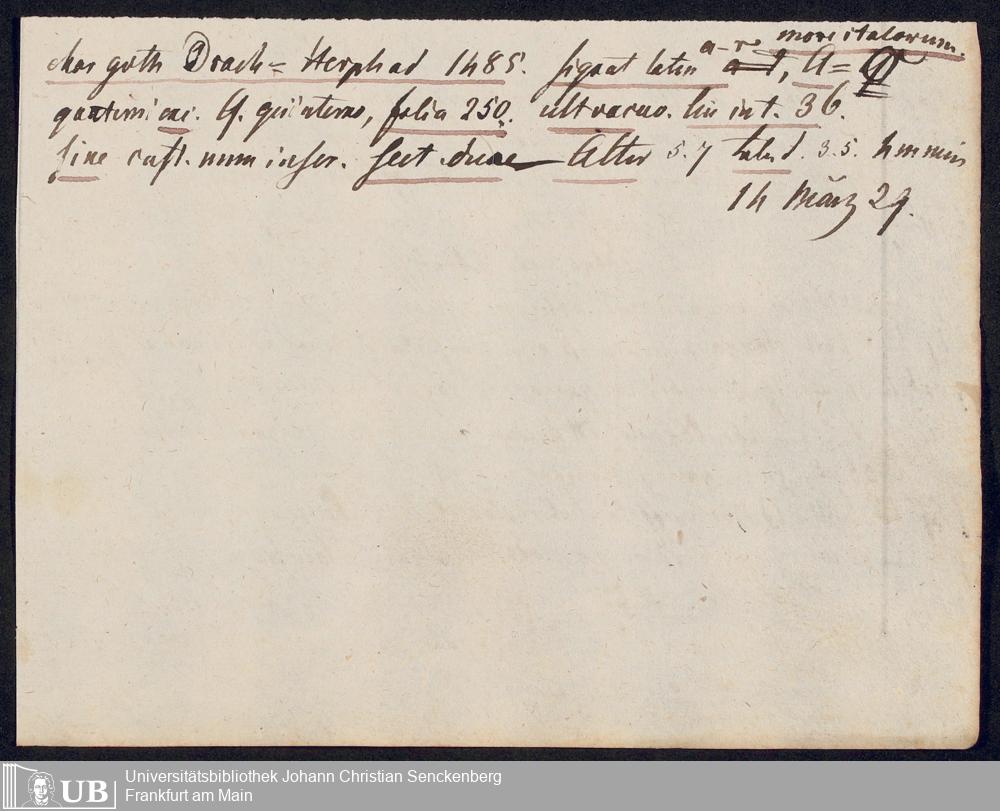 char goth Drach = Herphad 1485. signat latin a-r more italorum. a–t, A = Q
quaterni Q. quinterno, folia 250. ult vacuo. lin int. 36.
sine cust. num inser. Sect. duae — Alter 5.7 tabul. 3.5.
14 März 29.
UB Universitätsbibliothek Johann Christian Senckenberg
Frankfurt am Main